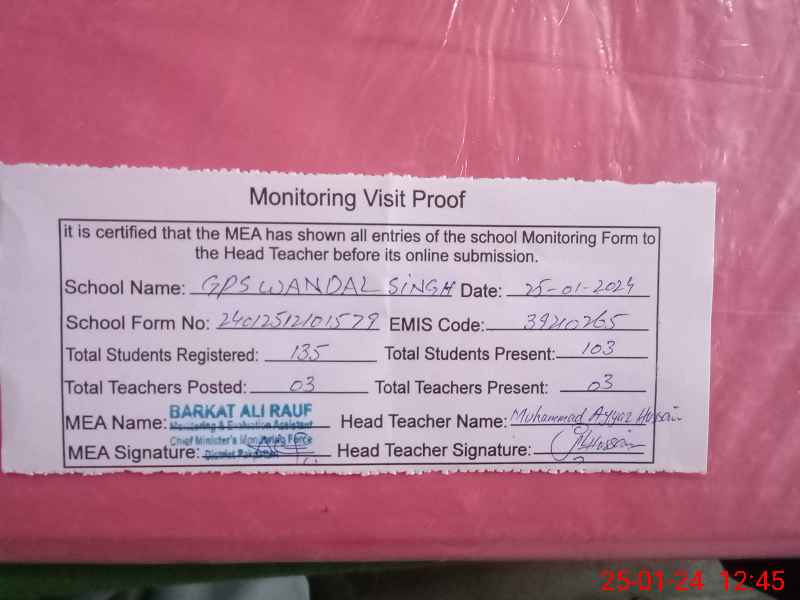 Monitoring Visit Proof
it is certified that the MEA has shown all entries of the school Monitoring Form to
the Head Teacher before its online submission.
School Name: GPS WANDAL SINGH Date: 25-01-2024
School Form No: 24012512101579 EMIS Code: 39210265
Total Students Registered: 135 Total Students Present: 103
Total Teachers Posted: 03 Total Teachers Present: 03
MEA Name: BARKAT ALI RAUF Head Teacher Name: Muhammad Ayyaz Hussain
Monitoring & Evaluation Assistant
Chief Minister's Monitoring Force
MEA Signature: District Head Teacher Signature: Hussain
25-01-24 12:45